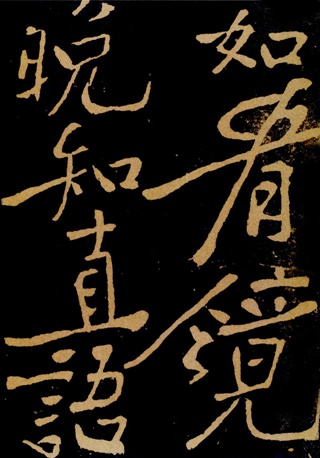 如看鏡
晚知直語